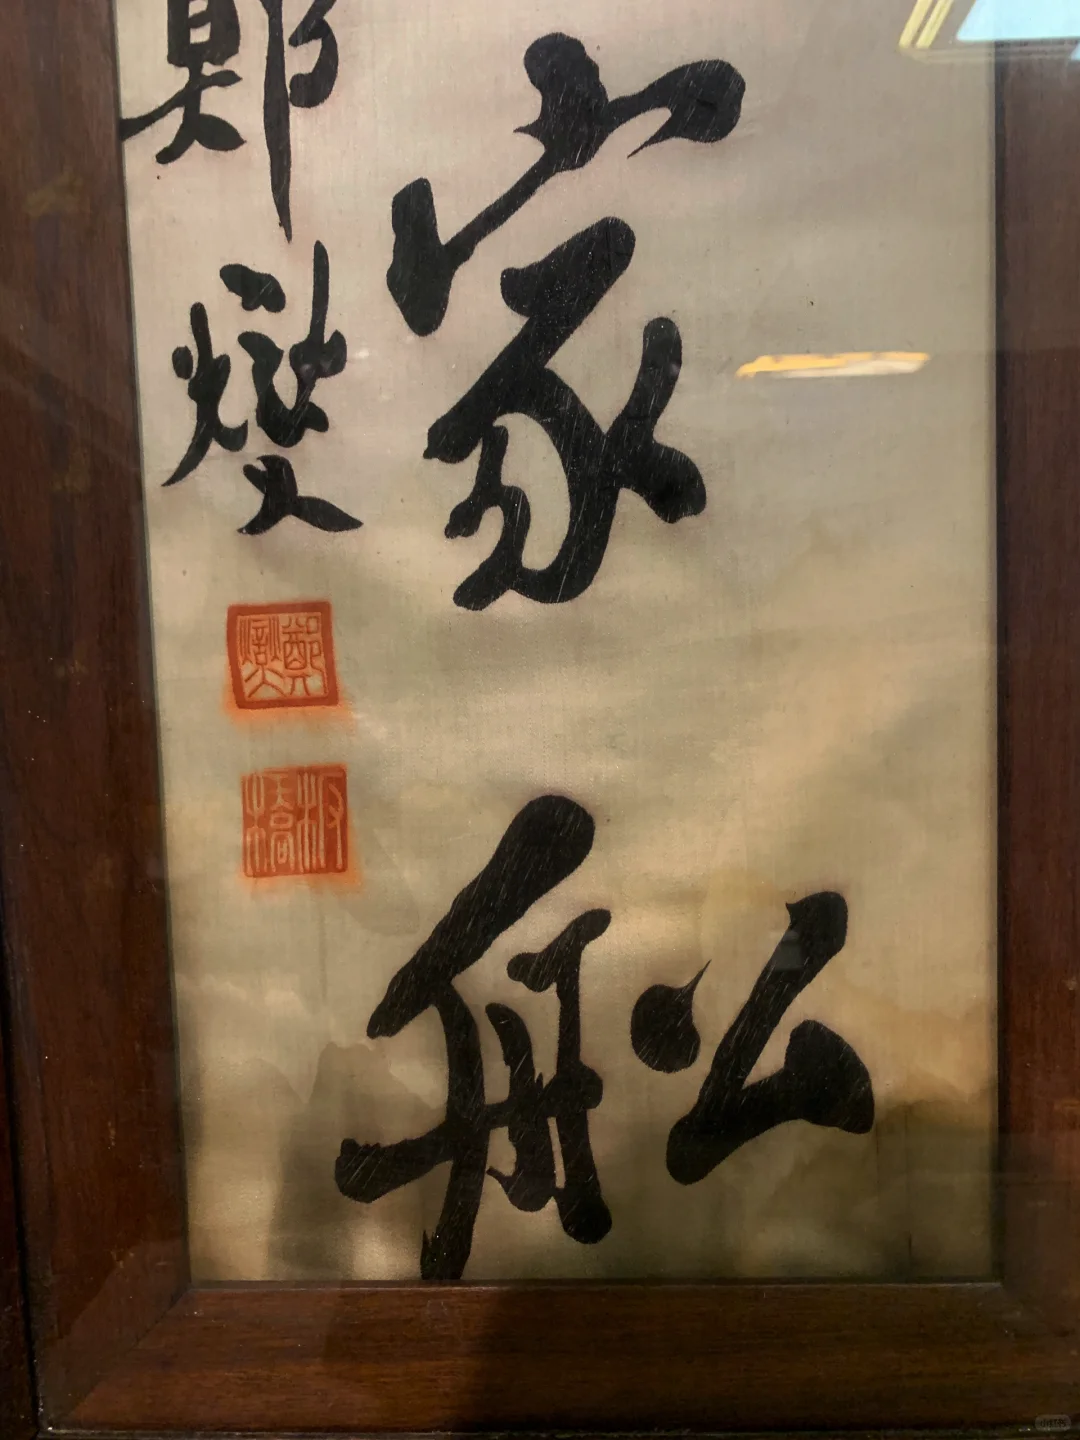 家船
鄭燮
鄭燮
板橋